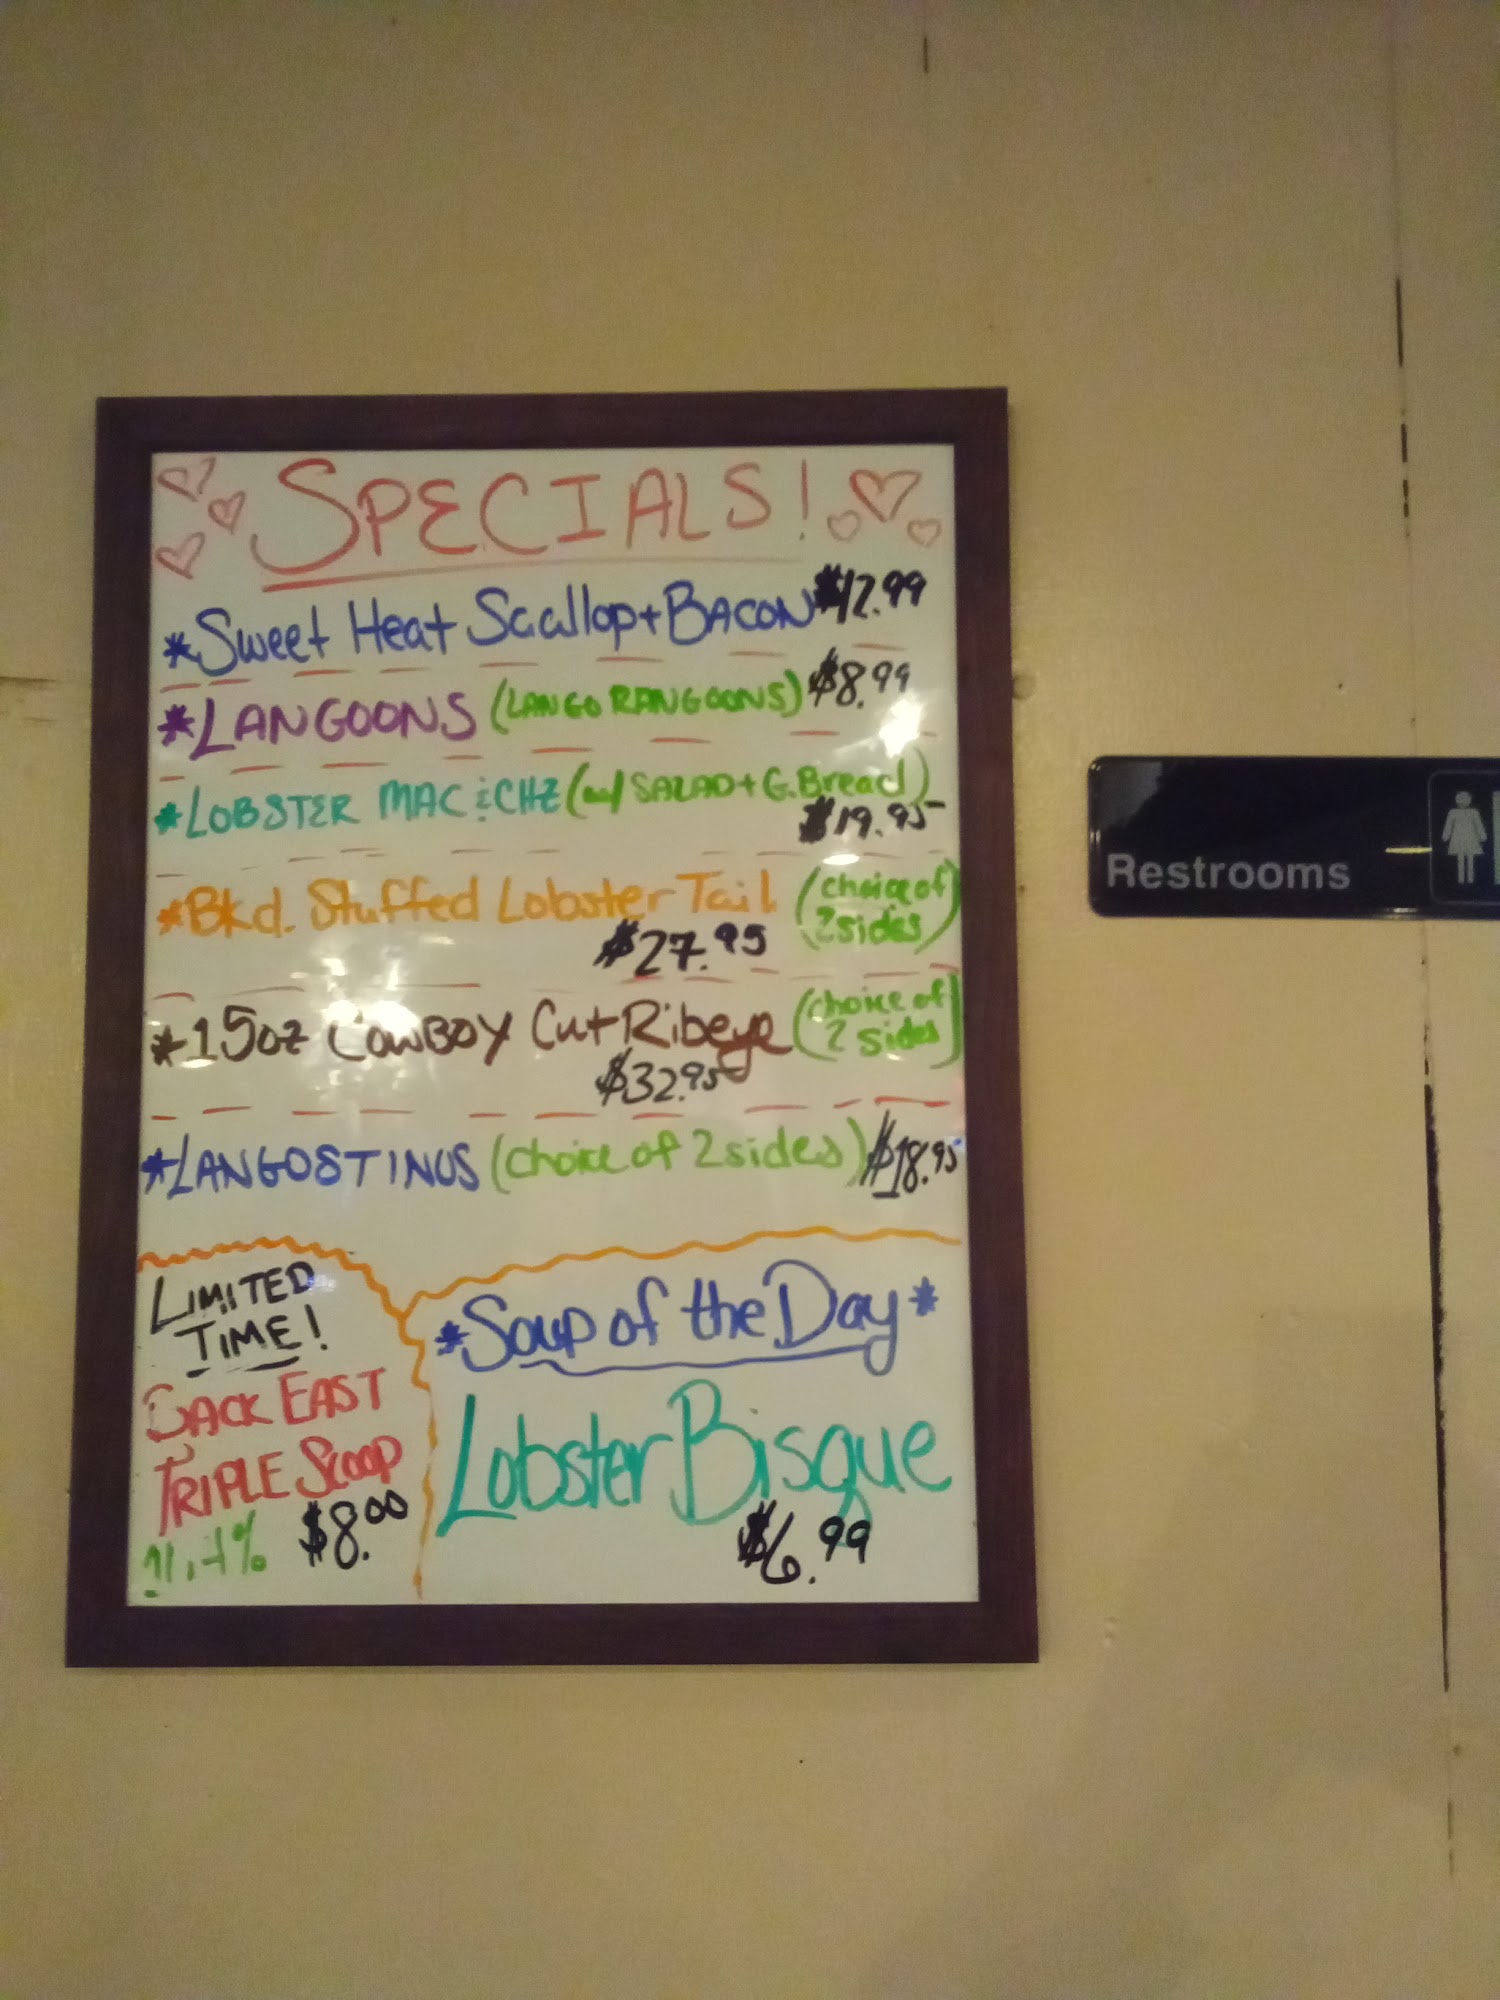 SPECIALS!
*Sweet Heat Scallop + BACON $12.99
*LANGOONS (LANGO RANGOONS) $8.99
*LOBSTER MAC & CHZ (w/ SALAD + G. Bread)
$19.95
*Bkd. Stuffed Lobster Tail (choice of
2 sides)
$27.95
*15oz COWBOY Cut Ribeye (choice of
2 sides)
$32.95
*LANGOSTINOS (choice of 2 sides) $18.95
LIMITED
TIME!
BACK EAST
TRIPLE Scoop
$8.00
*Soup of the Day*
Lobster Bisque
$6.99
Restrooms